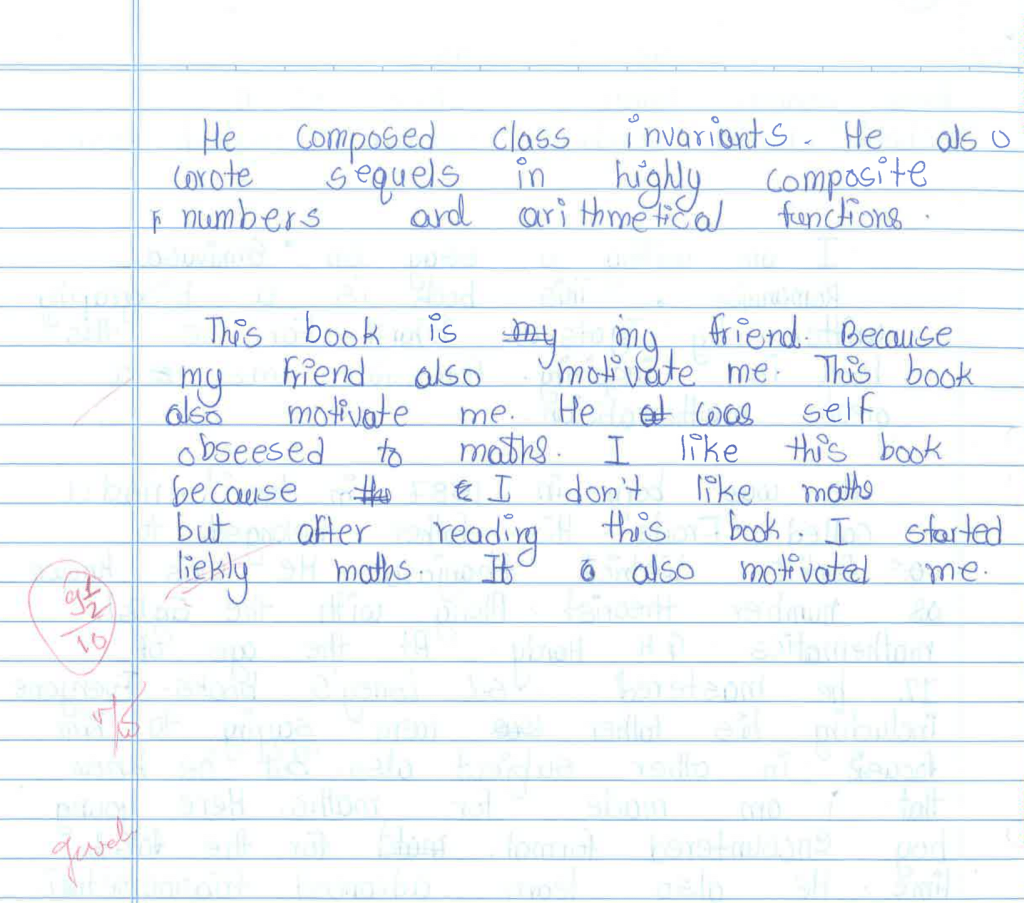 He composed class invariants. He also
wrote sequels in highly composite
numbers and arithmetical functions.
This book is my my friend. Because
my friend also motivate me. This book
also motivate me. He was self
obseesed to maths. I like this book
because I don't like maths
but after reading this book. I started
liekly maths. It also motivated me.
9 1/2
10
good